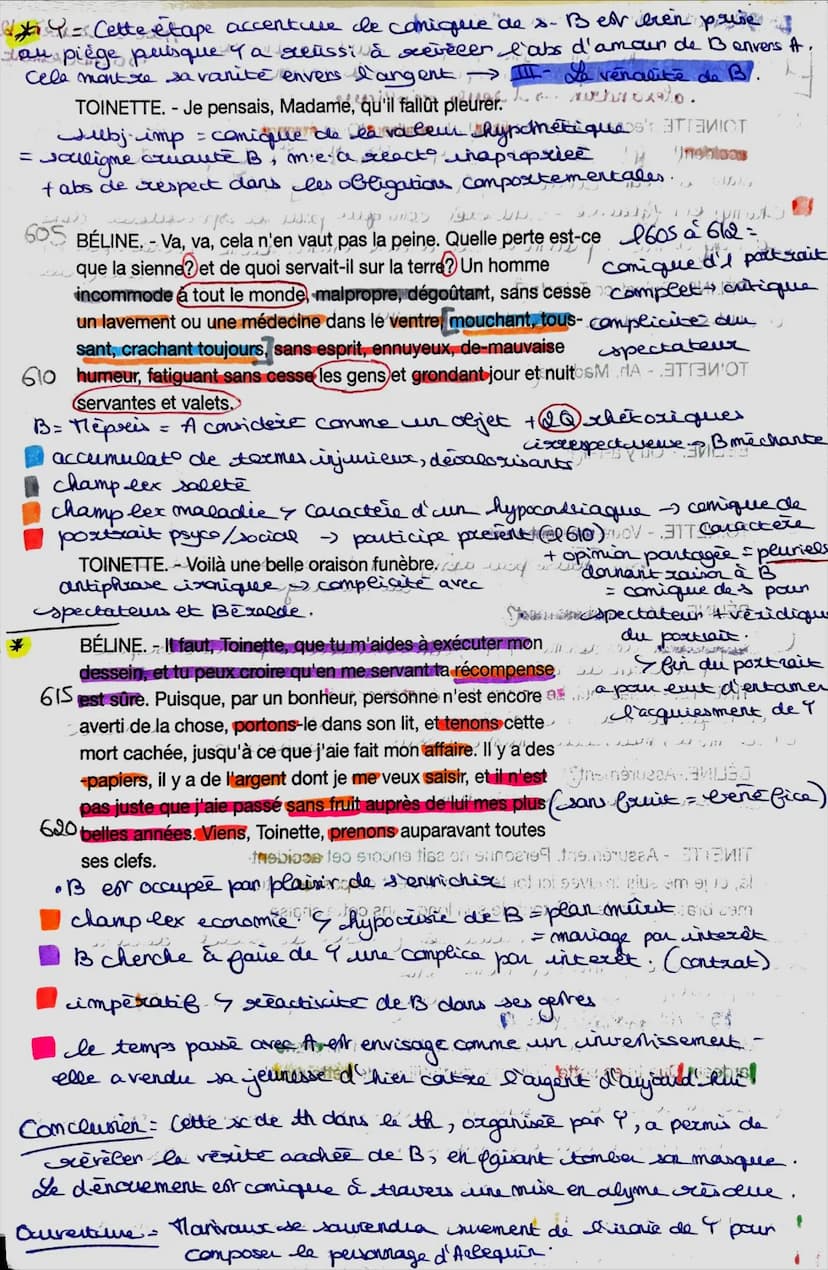 * Y = Cette étape accentue le comique de s- B est bien prise
au piège puisque Y a réussi à révéler l'abs d'amour de B envers A.
Cela montre sa vanité envers l'argent → III - La vénalité de B.
TOINETTE. - Je pensais, Madame, qu'il fallût pleurer.
subj. imp = comique de la valeur hypothétique
= souligne cruauté B, m.e.a réact° inapropriée
+ abs de respect dans les obligations comportementales.
605 BÉLINE. - Va, va, cela n'en vaut pas la peine. Quelle perte est-ce
que la sienne? et de quoi servait-il sur la terre? Un homme
incommode à tout le monde, malpropre, dégoûtant, sans cesse
un lavement ou une médecine dans le ventre, [mouchant, tous-
sant, crachant toujours,] sans esprit, ennuyeux, de mauvaise
610 humeur, fatiguant sans cesse les gens et grondant jour et nuit
servantes et valets.
l605 à 612 =
comique d'1 portrait
complet → critique
complicité du
spectateur
B = Mépris = A considéré comme un objet + 2Q rhétoriques
irrespectueuse → B méchante
accumulat° de termes injurieux, dévalorisants
champ lex saleté
champ lex maladie ↳ caractère d'un hypocondriaque → comique de
caractère
portrait psyco/social → participe présent (l610)
+ opinion partagée = pluriels
donnant raison à B
= comique de s pour
spectateur + véridique
du portrait.
↳ fin du portrait
a pour but d'entamer
l'acquiesment de Y
TOINETTE. - Voilà une belle oraison funèbre.
antiphrase ironique → complicité avec
spectateurs et Béralde.
* BÉLINE. - Il faut, Toinette, que tu m'aides à exécuter mon
dessein, et tu peux croire qu'en me servant ta récompense
615 est sûre. Puisque, par un bonheur, personne n'est encore
averti de la chose, portons-le dans son lit, et tenons cette
mort cachée, jusqu'à ce que j'aie fait mon affaire. Il y a des
papiers, il y a de l'argent dont je me veux saisir, et il n'est
pas juste que j'aie passé sans fruit auprès de lui mes plus (sans fruit = bénéfice)
620 belles années. Viens, Toinette, prenons auparavant toutes
ses clefs.
• B est occupée par plaisir de s'enrichir
champ lex economie. ↳ hypocrisie de B = plan mûrit
= mariage par intérêt
B cherche à faire de Y une complice par intérêt. (contrat)
impératif ↳ réactivité de B dans ses gestes
le temps passé avec A est envisagé comme un investissement -
elle a vendu sa jeunesse d'hier contre l'argent d'aujourd'hui
Conclusion = Cette sc de th dans le th, organisée par Y, a permis de
révéler la vérité cachée de B, en faisant tomber son masque.
Le dénouement est comique à travers une mise en abyme résolue.
Ouverture = Marivaux se souviendra sûrement de l'ironie de Y pour
composer le personnage d'Arlequin.